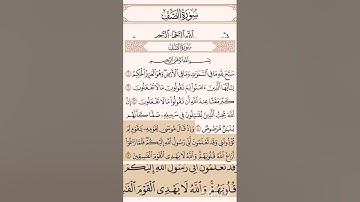 سُورَةُ الصَّفِّ
سُورَةُ الصَّفِّ
بِسْمِ اللَّهِ الرَّحْمَٰنِ الرَّحِيمِ
سَبَّحَ لِلَّهِ مَا فِي السَّمَٰوَٰتِ وَمَا فِي الْأَرْضِ وَهُوَ الْعَزِيزُ الْحَكِيمُ ١
يَٰأَيُّهَا الَّذِينَ ءَامَنُوا لِمَ تَقُولُونَ مَا لَا تَفْعَلُونَ ٢
كَبُرَ مَقْتًا عِندَ اللَّهِ أَن تَقُولُوا مَا لَا تَفْعَلُونَ ٣
إِنَّ اللَّهَ يُحِبُّ الَّذِينَ يُقَٰتِلُونَ فِي سَبِيلِهِ صَفًّا كَأَنَّهُم
بُنْيَٰنٌ مَّرْصُوصٌ ٤ وَإِذْ قَالَ مُوسَىٰ لِقَوْمِهِ يَٰقَوْمِ لِمَ
تُؤْذُونَنِي وَقَد تَّعْلَمُونَ أَنِّي رَسُولُ اللَّهِ إِلَيْكُمْ فَلَمَّا زَاغُوا
أَزَاغَ اللَّهُ قُلُوبَهُمْ وَاللَّهُ لَا يَهْدِي الْقَوْمَ الْفَٰسِقِينَ ٥
قَد تَّعْلَمُونَ أَنِّي رَسُولُ اللَّهِ إِلَيْكُمْ
قُلُوبَهُمْ وَاللَّهُ لَا يَهْدِي الْقَوْمَ الْفَٰسِقِينَ